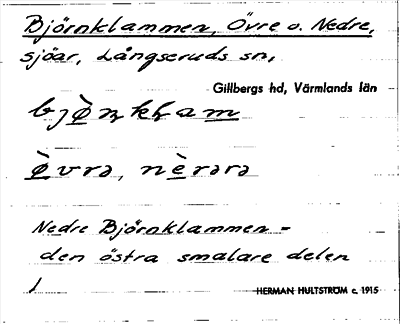 Björnklammen, Övre o. Nedre,
sjöar, Långseruds sn,
Gillbergs hd, Värmlands län
Nedre Björnklammen =
den östra smalare delen
HERMAN HULTSTRÖM c. 1915